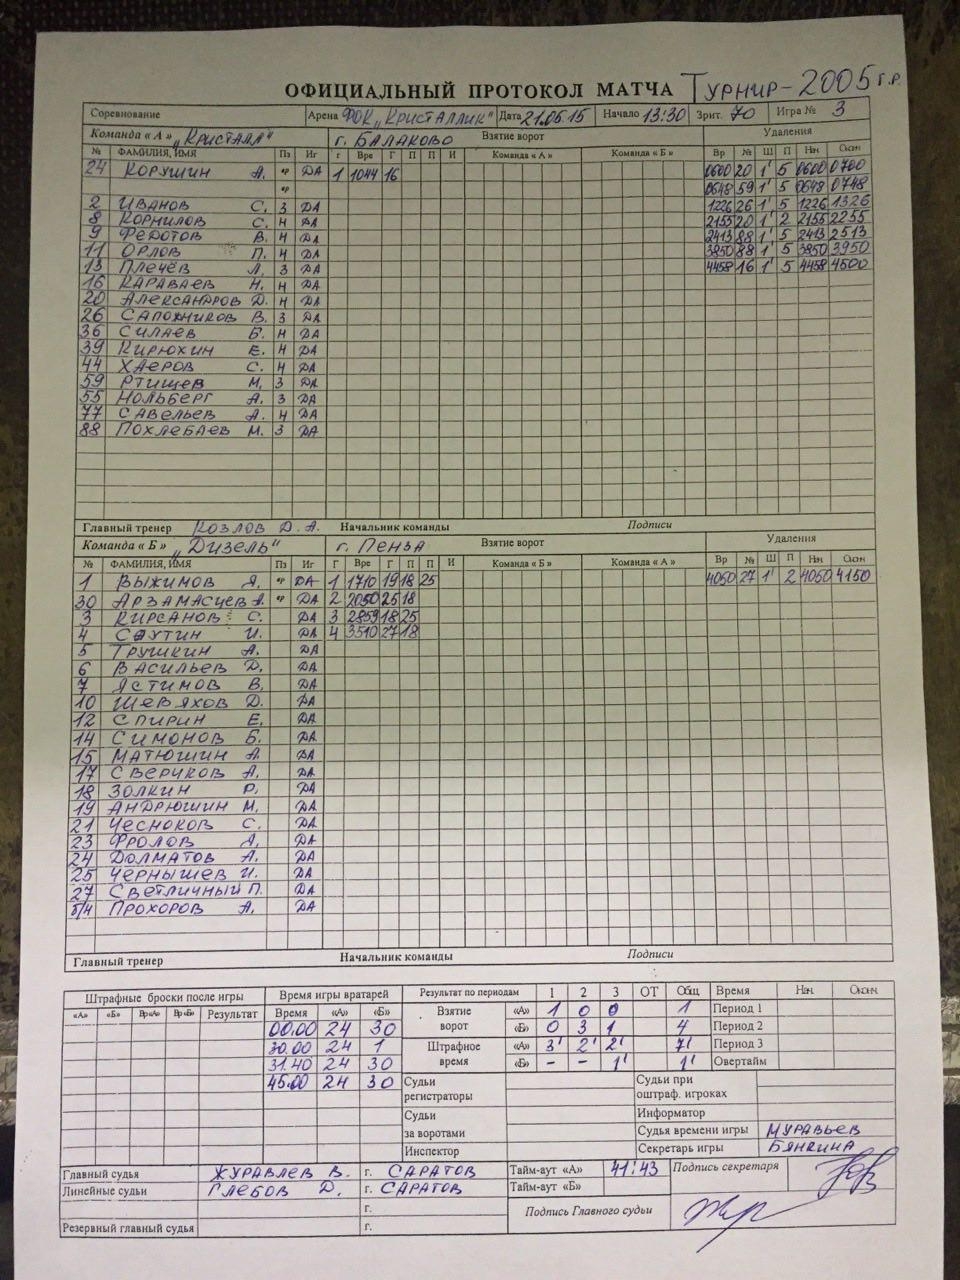 ОФИЦИАЛЬНЫЙ ПРОТОКОЛ МАТЧА Турнир-2005 г.р.
Соревнование Арена ФОК „Кристаллик" Дата 21.06.15 Начало 13:30 Зрит. 70 Игра № 3
Команда «А» „Кристалл" г. Балаково Взятие ворот Удаления
№ ФАМИЛИЯ, ИМЯ Пз Иг Г Вре Г П П И Команда «А» Команда «Б» Вр № Ш П Нач Окон
24 Корушин А. вр ДА 1 1044 16 0600 20 1' 5 0600 0700
вр 0648 59 1' 5 0648 0748
2 Иванов С. З ДА 1226 26 1' 5 1226 1326
8 Корнилов С. Н ДА 2155 20 1' 2 2155 2255
9 Федотов В. Н ДА 2413 88 1' 5 2413 2513
11 Орлов П. Н ДА 3850 88 1' 5 3850 3950
13 Плечёв Л. З ДА 4458 16 1' 5 4458 4500
16 Караваев Н. Н ДА
20 Александров Д. Н ДА
26 Сапожников В. З ДА
36 Силаев Б. Н ДА
39 Кирюхин Е. Н ДА
44 Хаеров С. Н ДА
59 Ртищев М. З ДА
55 Нольберг А. З ДА
77 Савельев А. Н ДА
88 Похлебаев М. З ДА
Главный тренер Козлов Д.А. Начальник команды Подписи
Команда «Б» „Дизель" г. Пенза Взятие ворот Удаления
№ ФАМИЛИЯ, ИМЯ Пз Иг Г Вре Г П П И Команда «Б» Команда «А» Вр № Ш П Нач Окон
1 Выжимов Я. вр ДА 1 1710 19 18 25 4050 27 1' 2 4050 4150
30 Арзамасцев А. вр ДА 2 2050 25 18
3 Кирсанов С. ДА 3 2859 18 25
4 Саутин И. ДА 4 3510 27 18
5 Трушкин А. ДА
6 Васильев Д. ДА
7 Ястимов В. ДА
10 Шевяхов Д. ДА
12 Спирин Е. ДА
14 Симонов Б. ДА
15 Матюшин А. ДА
17 Сверчков А. ДА
18 Золкин Р. ДА
19 Андрюшин М. ДА
21 Чесноков С. ДА
23 Фролов А. ДА
24 Долматов А. ДА
25 Чернышев И. ДА
27 Светличный П. ДА
б/н Прохоров А. ДА
Главный тренер Начальник команды Подписи
Штрафные броски после игры Время игры вратарей Результат по периодам 1 2 3 ОТ Общ Время Нач. Оконч.
«А» «Б» Вр«А» Вр«Б» Результат Время «А» «Б» Взятие ворот «А» 1 0 0 1 Период 1
00.00 24 30 «Б» 0 3 1 4 Период 2
30.00 24 1 Штрафное время «А» 3' 2' 2' 7' Период 3
31.40 24 30 «Б» - - 1' 1' Овертайм
45.00 24 30 Судьи регистраторы Судьи при оштраф. игроках
Судьи за воротами Информатор
Судья времени игры Муравьев
Инспектор Секретарь игры Бянкина
Главный судья Журавлев В. г. Саратов Тайм-аут «А» 41:43 Подпись секретаря
Линейные судьи Глебов Д. г. Саратов Тайм-аут «Б»
г. Подпись Главного судьи
Резервный главный судья г.